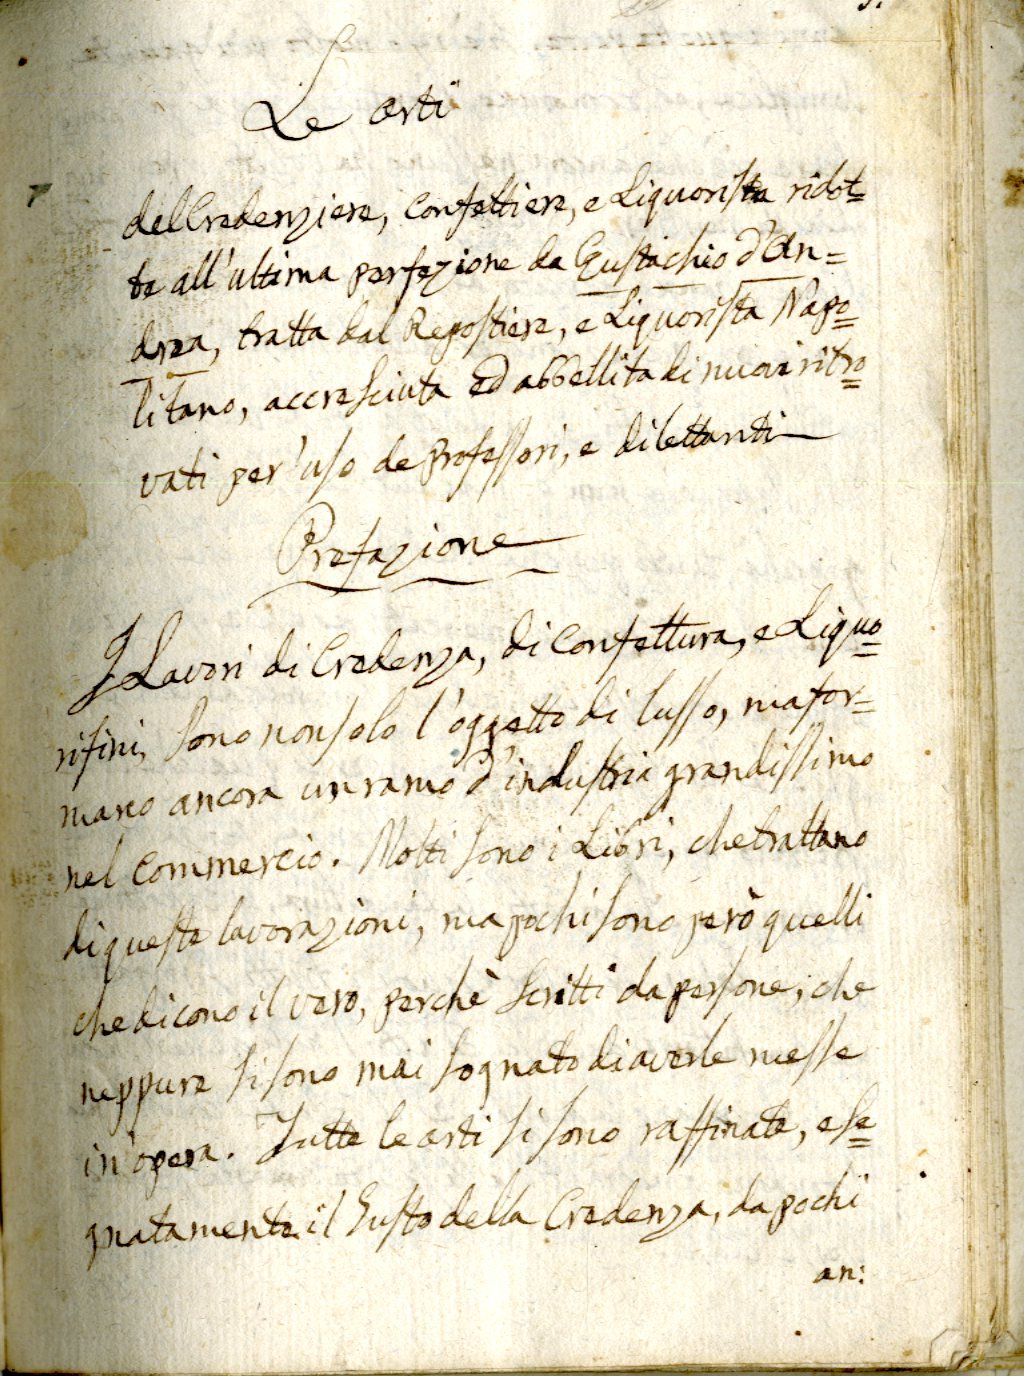 Le arti
del Credenziere, Confettiere, e Liquorista ridot=
te all'ultima perfezione da Eustachio d'An=
drea, tratta dal Repostiere, e Liquorista Napo=
litano, accresciuta ed abbellita di nuovi ritro=
vati per l'uso de Professori, e dilettanti
Prefazione
I Lavori di Credenza, di Confettura, e Liquo=
rifini, sono non solo l'oggetto di lusso, ma for=
mano ancora un ramo d'industria grandissimo
nel commercio. Molti sono i Libri, che trattano
di queste lavorazioni, ma pochi sono però quelli
che dicono il vero, perchè scritti da persone, che
neppure si sono mai sognato di averle messe
in opera. Tutte le arti si sono raffinate, e se=
gnatamente il Gusto della Credenza, da pochi
an: